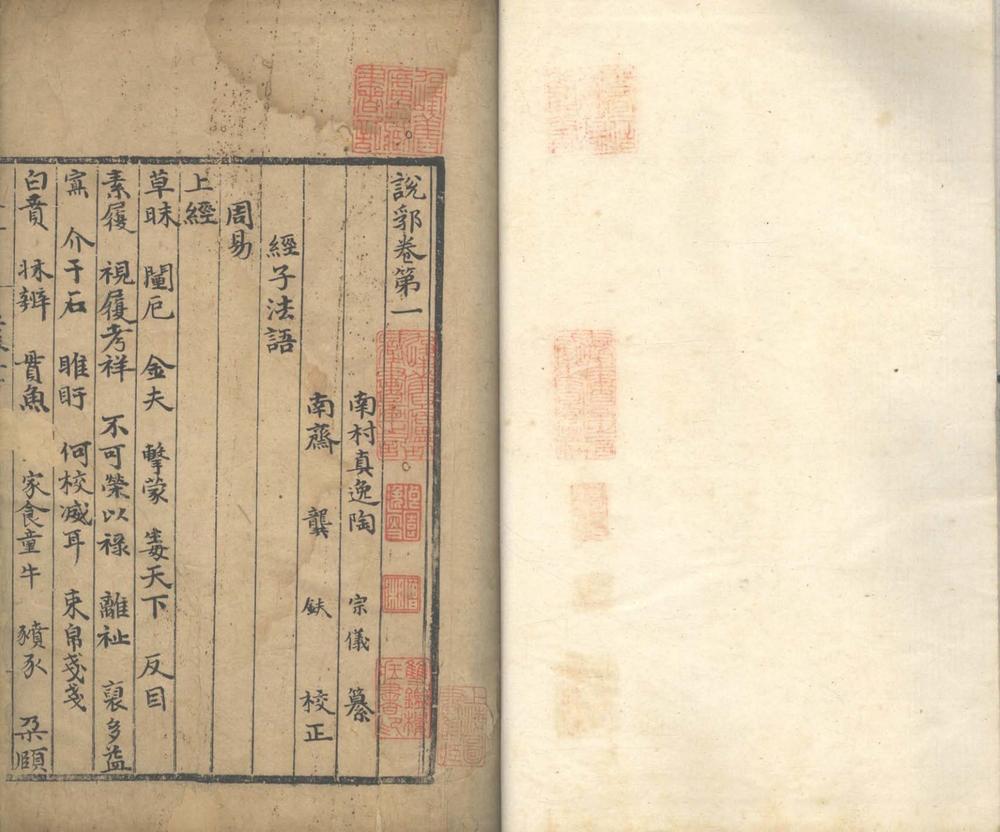 說郛卷第一
南村真逸陶 宗儀 纂
南齋 龔 鈇 校正
經子法語
周易
上經
草昧 闖戹 金夫 擊蒙 毒天下 反目
素履 視履考祥 不可榮以祿 離祉 裒多益
寡 介于石 睢盱 何校滅耳 束帛戔戔
白賁 牀辨 貫魚 家食童牛 豶豕 朶頤